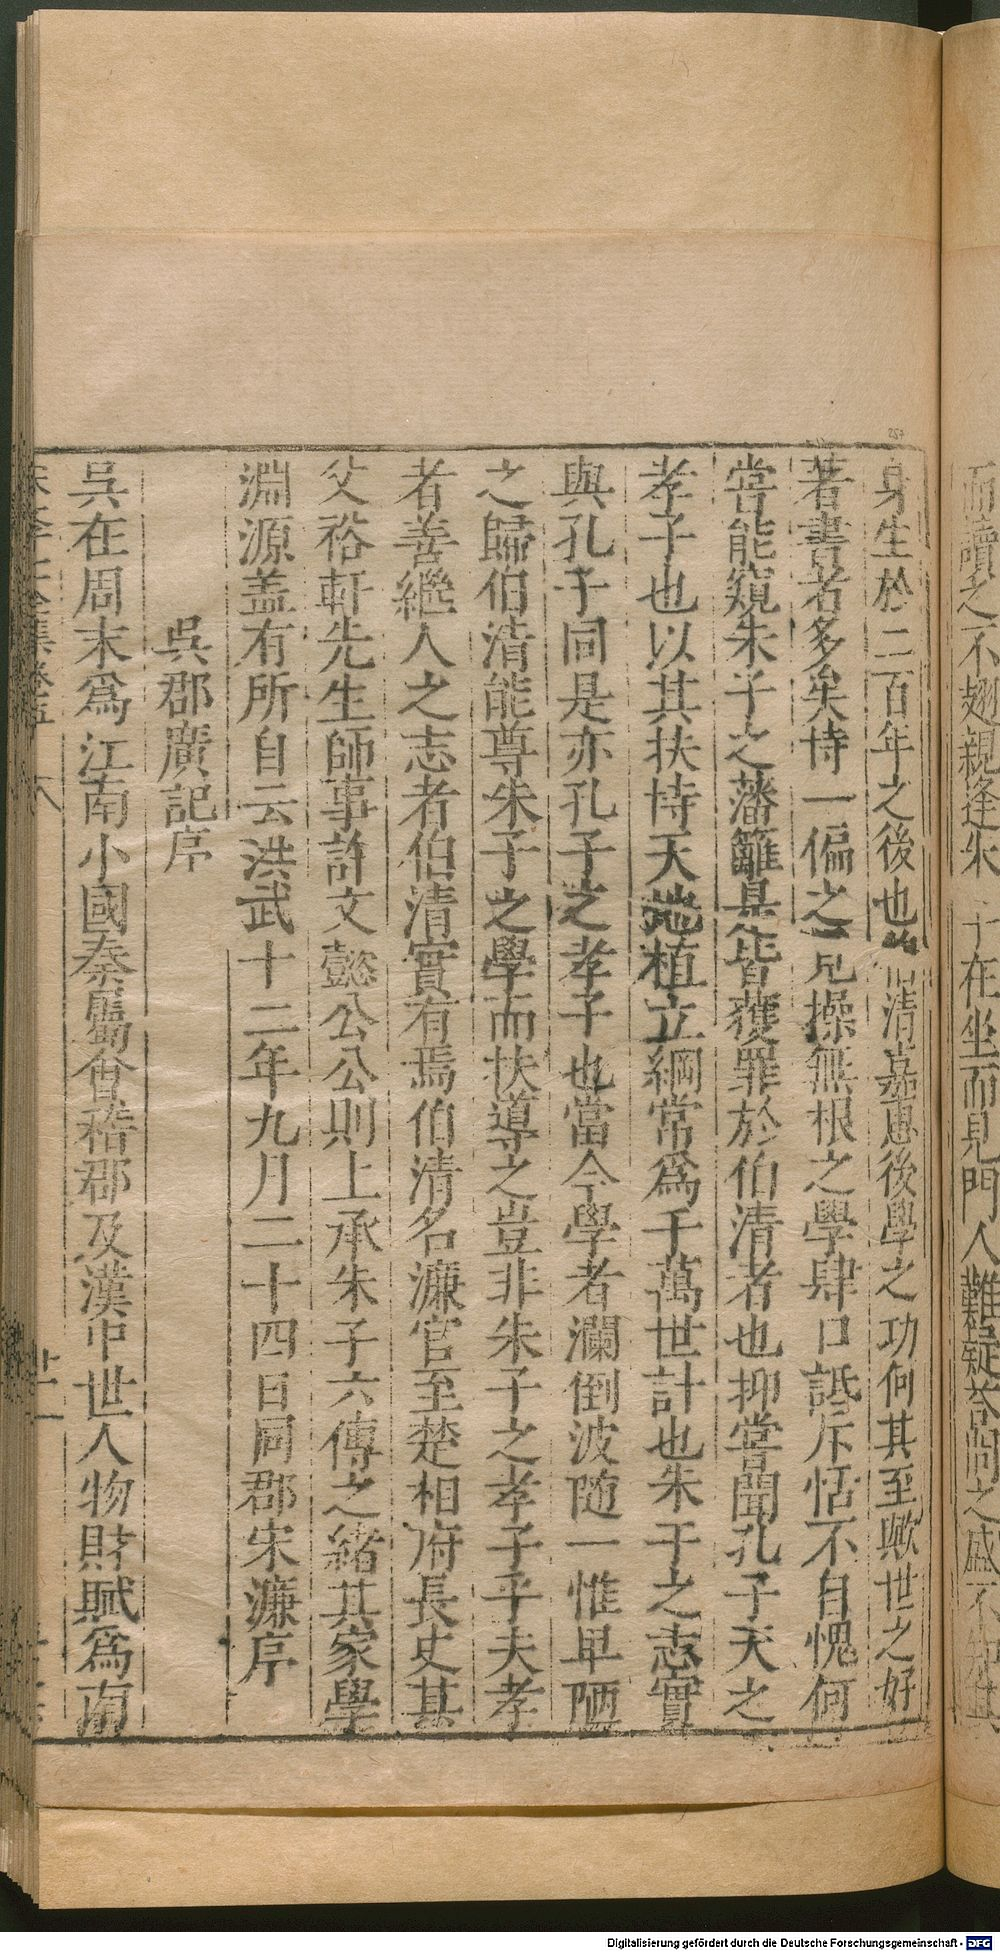 而讀之不翅親逢朱子在坐而見門人難疑荅問之盛不知其
身生於二百年之後也伯清嘉惠後學之功何其至歟世之好
著書者多矣恃一偏之見操無根之學肆口詆斥恬不自愧何
甞能窺朱子之藩籬是皆獲罪於伯清者也抑甞聞孔子天之
孝子也以其扶持天地植立綱常爲千萬世計也朱子之志實
與孔子同是亦孔子之孝子也當今學者瀾倒波随一惟卑陋
之歸伯清能尊朱子之學而扶導之豈非朱子之孝子乎夫孝
者善繼人之志者伯清實有焉伯清名濂官至楚相府長史其
父裕軒先生師事許文懿公公則上承朱子六傳之緒其家學
淵源盖有所自云洪武十二年九月二十四日同郡宋濂序
吳郡廣記序
吳在周末爲江南小國秦屬會稽郡及漢中世人物財賦爲南
廿一
257
Digitalisierung gefördert durch die Deutsche Forschungsgemeinschaft - DFG